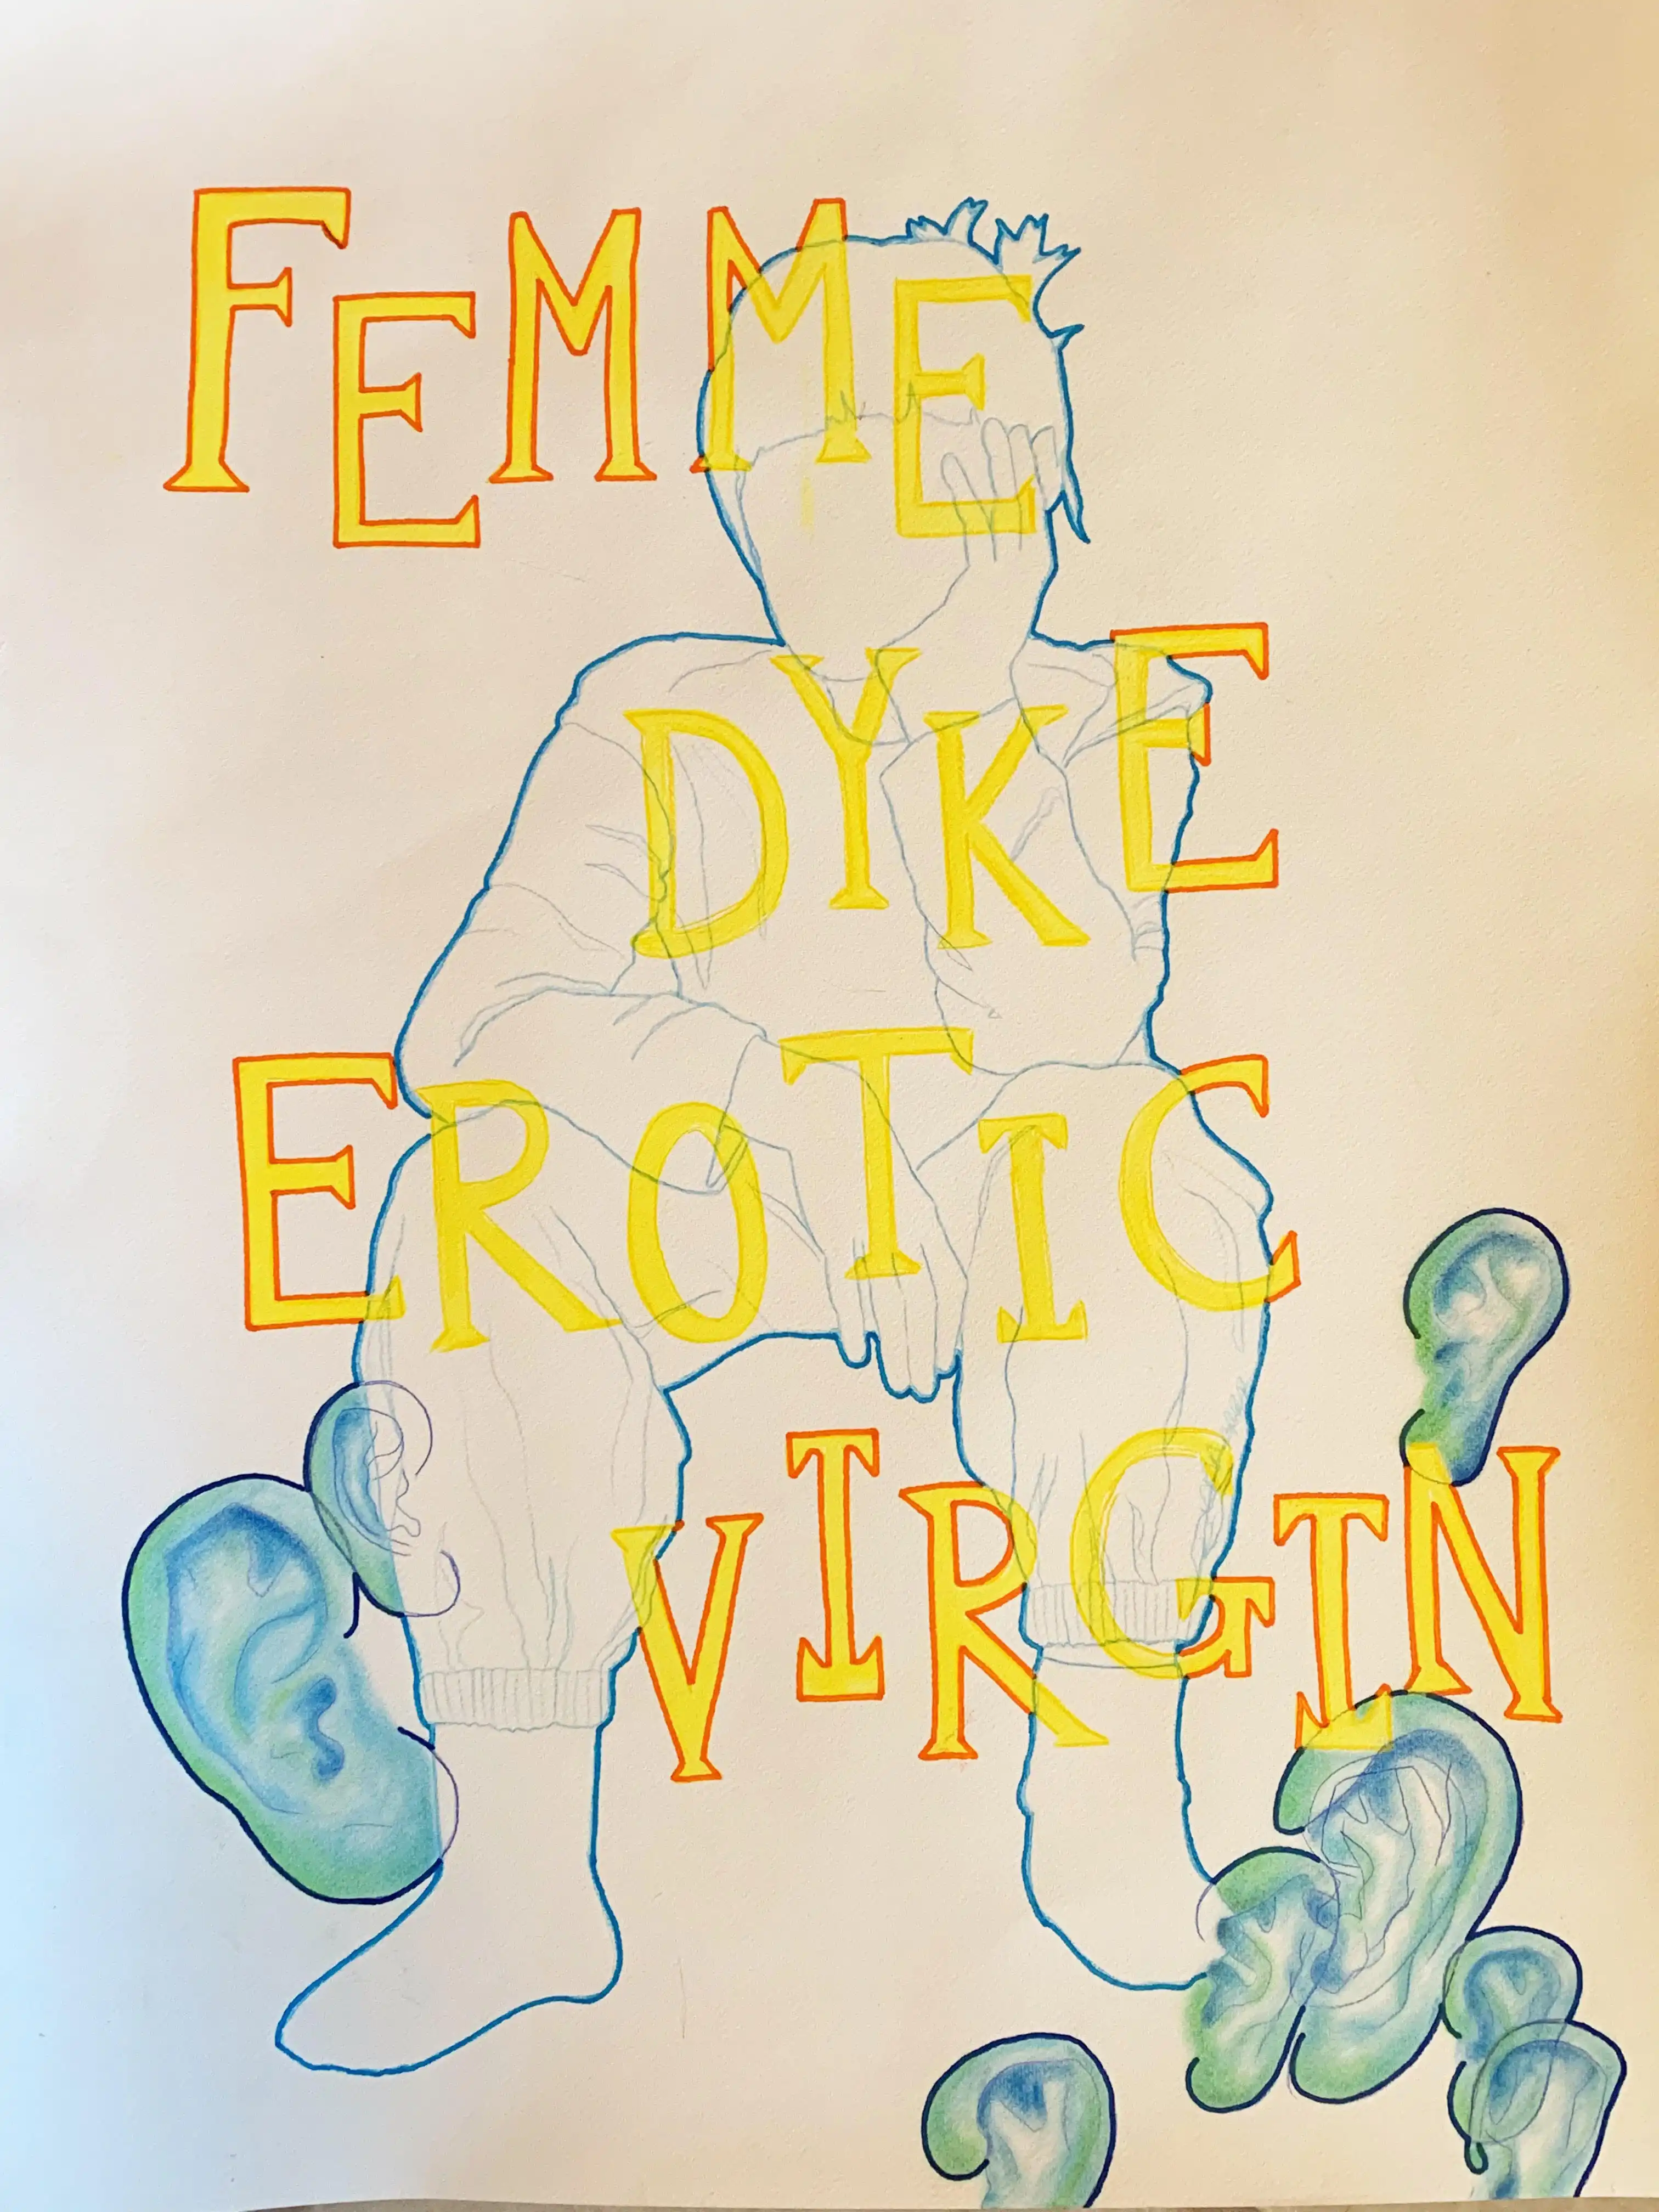 FEMME
DYKE
EROTIC
VIRGIN